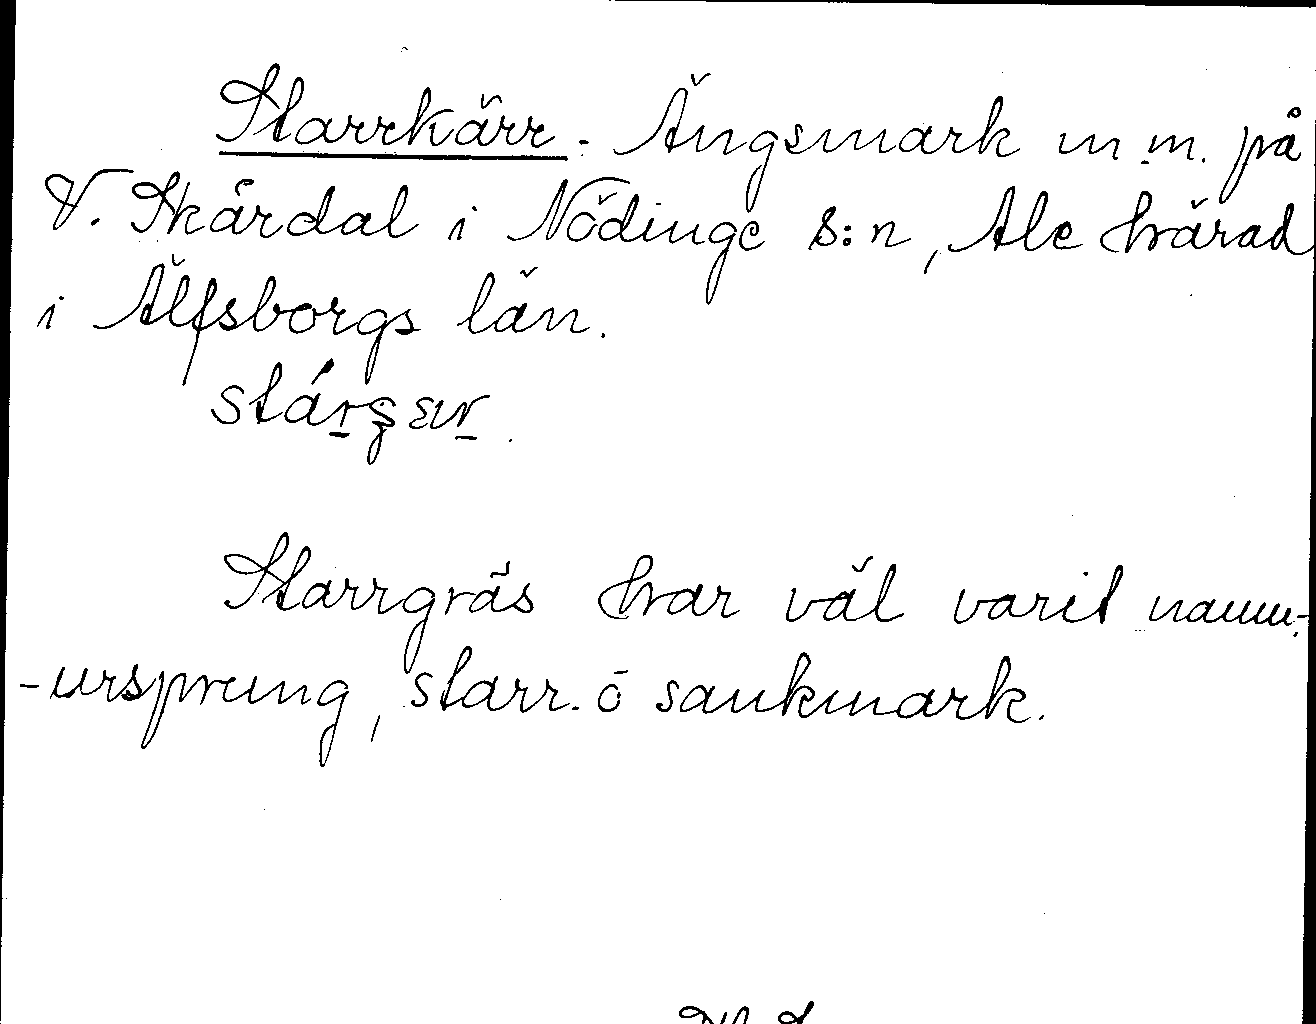 Starrkärr. Ängsmark m.m. på
V. Skårdal i Nödinge s:n, Ale härad
i Älfsborgs län.
Starrgräs har väl varit namn-
-ursprung, starr. o sankmark.